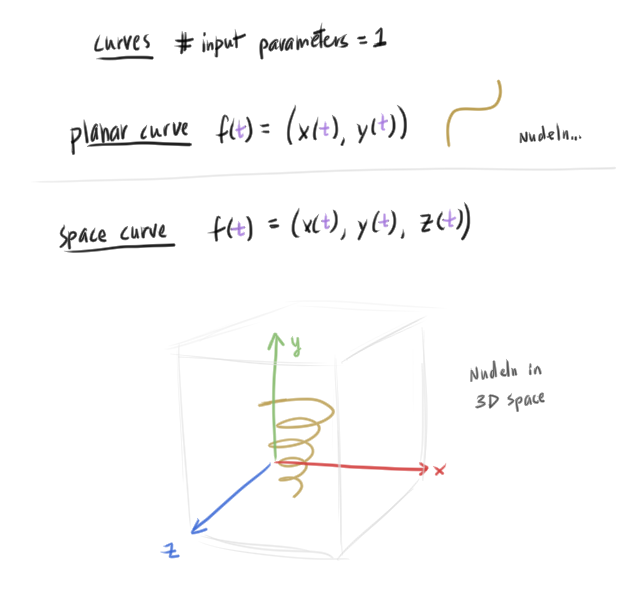 curves # input parameters = 1
planar curve f(t) = (x(t), y(t))
Nudeln...
space curve f(t) = (x(t), y(t), z(t))
y
Nudeln in
3D space
x
z